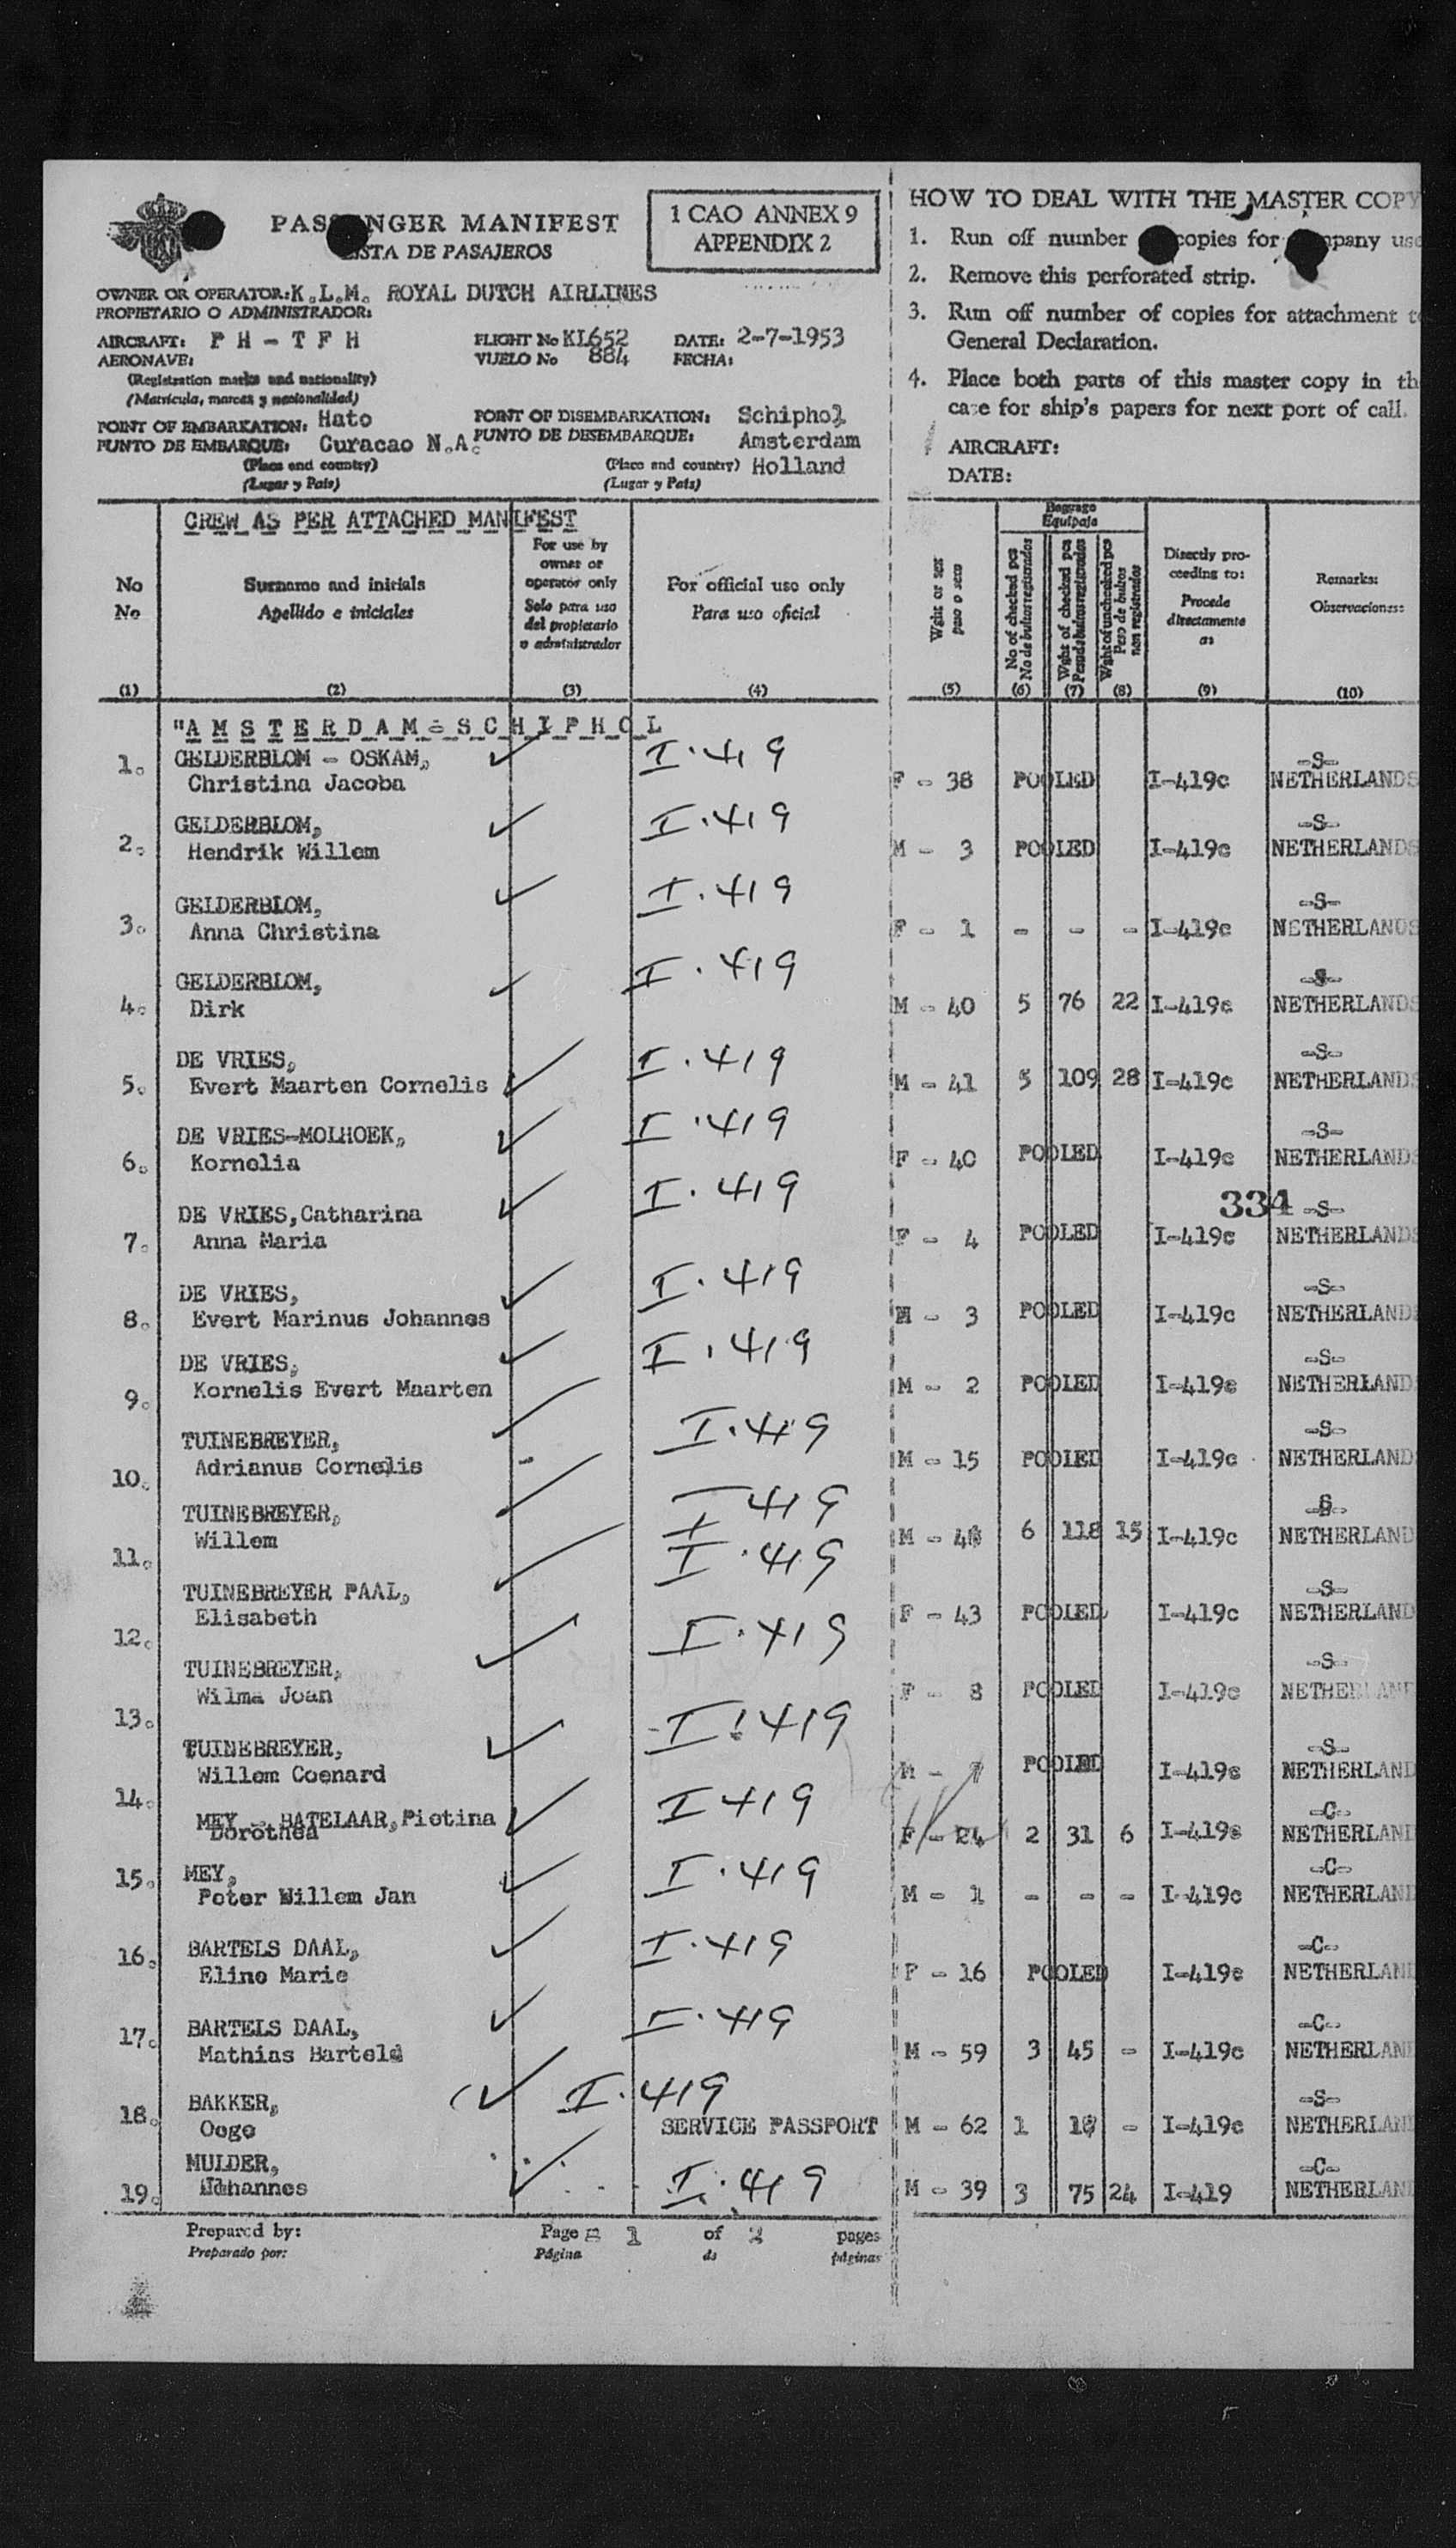 PASSENGER MANIFEST
LISTA DE PASAJEROS
1 CAO ANNEX 9
APPENDIX 2
OWNER OR OPERATOR: K.L.M. ROYAL DUTCH AIRLINES
PROPIETARIO O ADMINISTRADOR:
AIRCRAFT: PH - TFH FLIGHT No KL652 DATE: 2-7-1953
AERONAVE: VUELO No 884 FECHA:
(Registration marks and nationality)
(Matrícula, marcas y nacionalidad)
POINT OF EMBARKATION: Hato POINT OF DISEMBARKATION: Schiphol
PUNTO DE EMBARQUE: Curacao N.A. PUNTO DE DESEMBARQUE: Amsterdam
(Place and country) (Place and country) Holland
(Lugar y País) (Lugar y País)
HOW TO DEAL WITH THE MASTER COPY
1. Run off number copies for company use
2. Remove this perforated strip.
3. Run off number of copies for attachment to
General Declaration.
4. Place both parts of this master copy in th
case for ship's papers for next port of call.
AIRCRAFT:
DATE:
CREW AS PER ATTACHED MANIFEST
No
No
(1)
Surname and initials
Apellido e iniciales
(2)
For use by
owner or
operator only
Solo para uso
del propietario
o administrador
(3)
For official use only
Para uso oficial
(4)
Wght or sex
peso o sexo
(5)
Baggage
Equipaje
No of checked pcs
No de bultos registrados
(6)
Wght of checked pcs
Peso de bultos registrados
(7)
Wght of unchecked pcs
Peso de bultos
non registrados
(8)
Directly pro-
ceeding to:
Procede
directamente
a:
(9)
Remarks:
Observaciones:
(10)
"AMSTERDAM-SCHIPHOL
1. GELDERBLOM - OSKAM, I.419 -S-
Christina Jacoba F - 38 POOLED I-419c NETHERLANDS
GELDERBLOM, I.419 -S-
2. Hendrik Willem M - 3 POOLED I-419c NETHERLANDS
GELDERBLOM, I.419 -S-
3. Anna Christina F - 1 - - - I-419c NETHERLANDS
GELDERBLOM, I.419 -S-
4. Dirk M - 40 5 76 22 I-419c NETHERLANDS
DE VRIES, I.419 -S-
5. Evert Maarten Cornelis M - 41 5 109 28 I-419c NETHERLANDS
DE VRIES-MOLHOEK, I.419 -S-
6. Kornelia F - 40 POOLED I-419c NETHERLANDS
334
DE VRIES, Catharina I.419 -S-
7. Anna Maria F - 4 POOLED I-419c NETHERLANDS
DE VRIES, I.419 -S-
8. Evert Marinus Johannes M - 3 POOLED I-419c NETHERLANDS
DE VRIES, I.419 -S-
9. Kornelis Evert Maarten M - 2 POOLED I-419c NETHERLAND
TUINEBREYER, I.419 -S-
10. Adrianus Cornelis M - 15 POOLED I-419c NETHERLAND
TUINEBREYER, I 419 -S-
11. Willem M - 6 118 15 I-419c NETHERLAND
TUINEBREYER PAAL, I.419 -S-
12. Elisabeth F - 43 POOLED I-419c NETHERLAND
TUINEBREYER, I.419 -S-
13. Wilma Joan F - 8 POOLED I-419c NETHERLAND
TUINEBREYER, I.419 -S-
Willem Coenard M - 7 POOLED I-419c NETHERLAND
14. MEY - BATELAAR, Pietina I 419 -C-
Dorothea F - 24 2 31 6 I-419c NETHERLAND
15. MEY, I.419 -C-
Peter Willem Jan M - 1 - - - I-419c NETHERLAND
16. BARTELS DAAL, I.419 -C-
Eline Marie F - 16 POOLED I-419c NETHERLAND
17. BARTELS DAAL, I.419 -C-
Mathias Barteld M - 59 3 45 - I-419c NETHERLAND
BAKKER, I.419 -S-
18. Ooge SERVICE PASSPORT M - 62 1 - I-419c NETHERLAND
MULDER, I.419 -C-
19. Johannes M - 39 3 75 24 I-419 NETHERLAND
Prepared by: Page 1 of 2 pages
Preparado por: Página de páginas